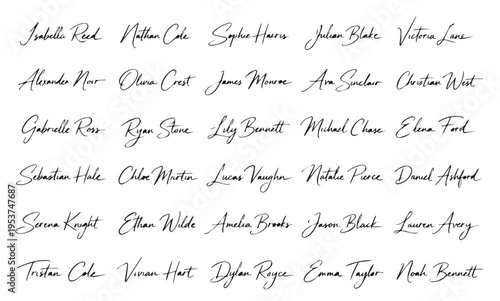 Isabella Reed Nathan Cole Sophie Harris Julian Blake Victoria Lane
Alexander Noir Olivia Crest James Monroe Ava Sinclair Christian West
Gabrielle Ross Ryan Stone Lily Bennett Michael Chase Elena Ford
Sebastian Hale Chloe Martin Lucas Vaughn Natalie Pierce Daniel Ashford
Serena Knight Ethan Wilde Amelia Brooks Jason Black Lauren Avery
Tristan Cole Vivian Hart Dylan Royce Emma Taylor Noah Bennett
Adobe Stock | #1953747687